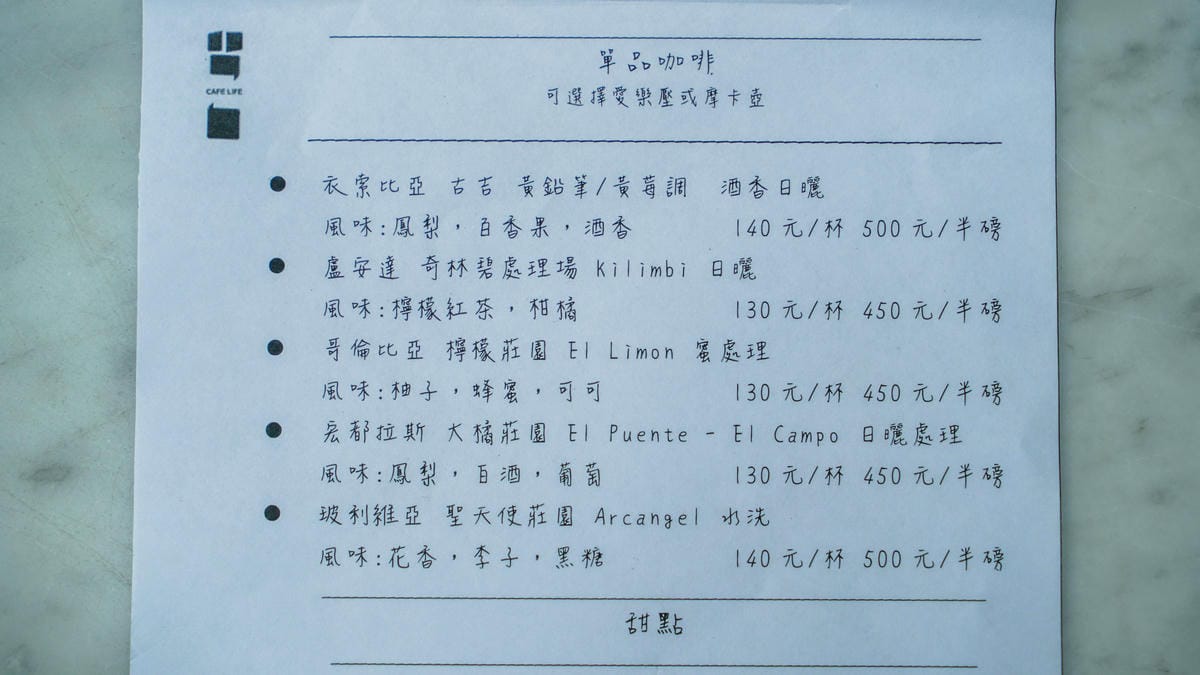 CAFE LIFE
單品咖啡
可選擇愛樂壓或摩卡壺
● 衣索比亞 古吉 黃鉛筆/黃莓調 酒香日曬
風味:鳳梨，百香果，酒香 140 元/杯 500 元/半磅
● 盧安達 奇林碧處理場 Kilimbi 日曬
風味:檸檬紅茶，柑橘 130 元/杯 450 元/半磅
● 哥倫比亞 檸檬莊園 El Limon 蜜處理
風味:柚子，蜂蜜，可可 130 元/杯 450 元/半磅
● 宏都拉斯 大橘莊園 El Puente - El Campo 日曬處理
風味:鳳梨，百酒，葡萄 130 元/杯 450 元/半磅
● 玻利維亞 聖天使莊園 Arcangel 水洗
風味:花香，李子，黑糖 140 元/杯 500 元/半磅
甜點